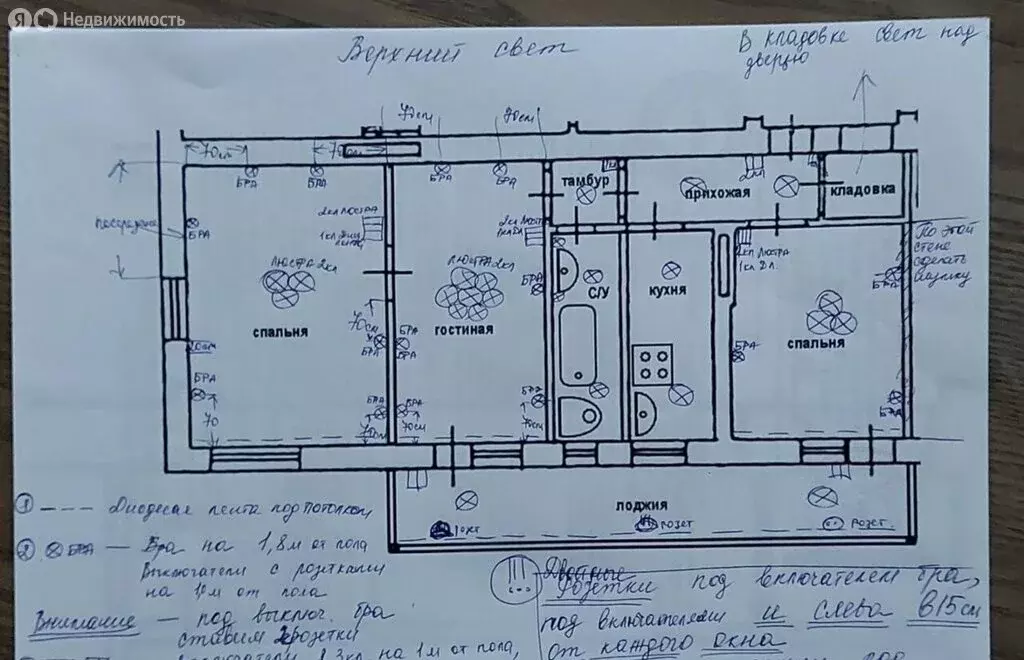 Я Недвижимость
Верхний свет
В кладовке свет над
дверцю
70см
70см
70см
70см
БРА
БРА
БРА
БРА
тамбур
прихожая
2кл
кладовка
посередине
БРА
2кл ЛЮСТРА
2кл ЛЮСТРА
1кл
2кл ЛЮСТРА
1кл
По этой
стене
сделать
БРА
ЛЮСТРА 2кл
ЛЮСТРА 2кл
БРА
С/У
кухня
спальня
70см
гостиная
спальня
БРА
БРА
БРА
БРА
БРА
БРА
БРА
БРА
70
70см
70см
70см
лоджия
РОЗЕТ
РОЗЕТ.
① --- Диодесая лента под потолком
② БРА — Бра на 1,8м от пола
Выключатели с розетками
на 1м от пола
Внимание — под выключ. бра
ставим 2 розетки
1,3кл на 1м от пола,
Двойные
розетки под включателем бра,
под включателями и слева в 15см
от каждого окна